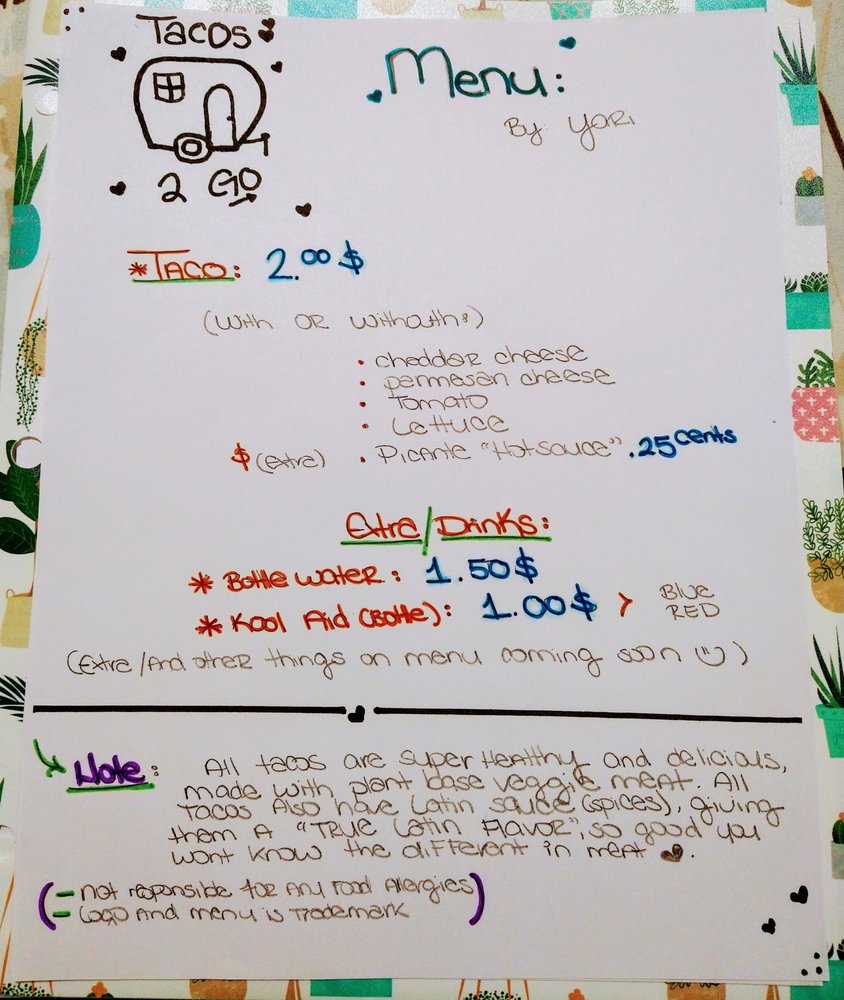 Tacos
2 GO
Menu:
By Yari
*Taco: 2.00 $
(With or Withouth:)
• cheddar cheese
• permesan cheese
• Tomato
• Lettuce
$ (extra) • Picante "Hot sauce" .25 cents
Extra/Drinks:
* Bottle Water: 1.50 $
* Kool Aid (Bottle): 1.00 $ > BLUE
RED
(Extra/And other things on menu coming soon)
Note: All tacos are super Healthy and delicious,
made with plant base veggie meat. All
Tacos Also have Latin sauce (spices), giving
them A "True Latin Flavor", so good you
wont know the different in meat.
(- not responsible for Any Food Allergies)
- Logo And menu is Trademark